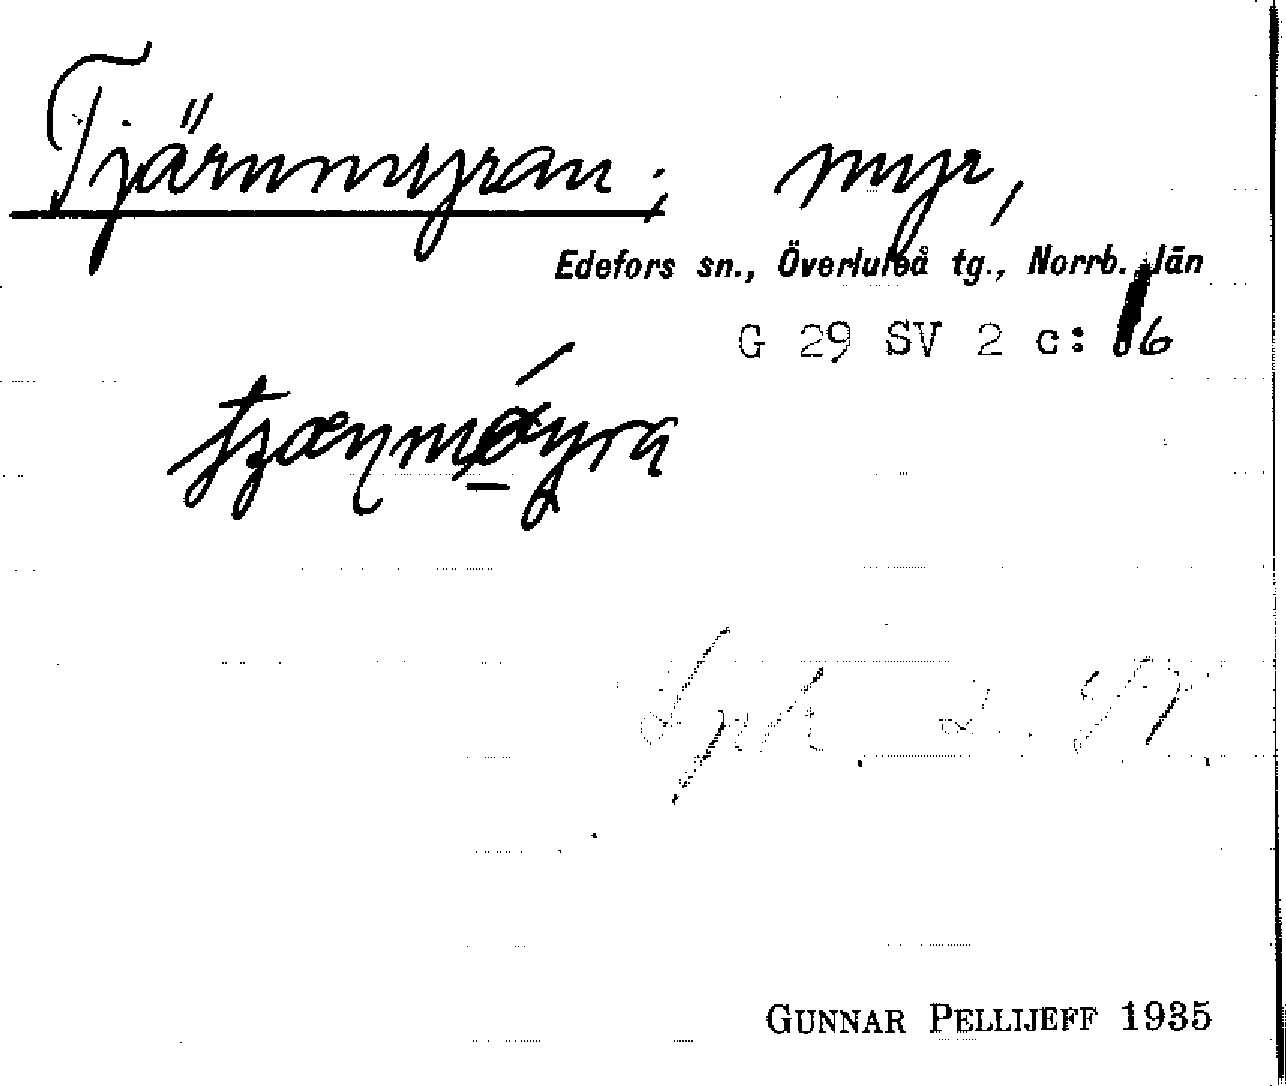 Tjärnmyran; myr,
Edefors sn., Överluleå tg., Norrb. län
G 29 SV 2 c: 6
GUNNAR PELLIJEFF 1935